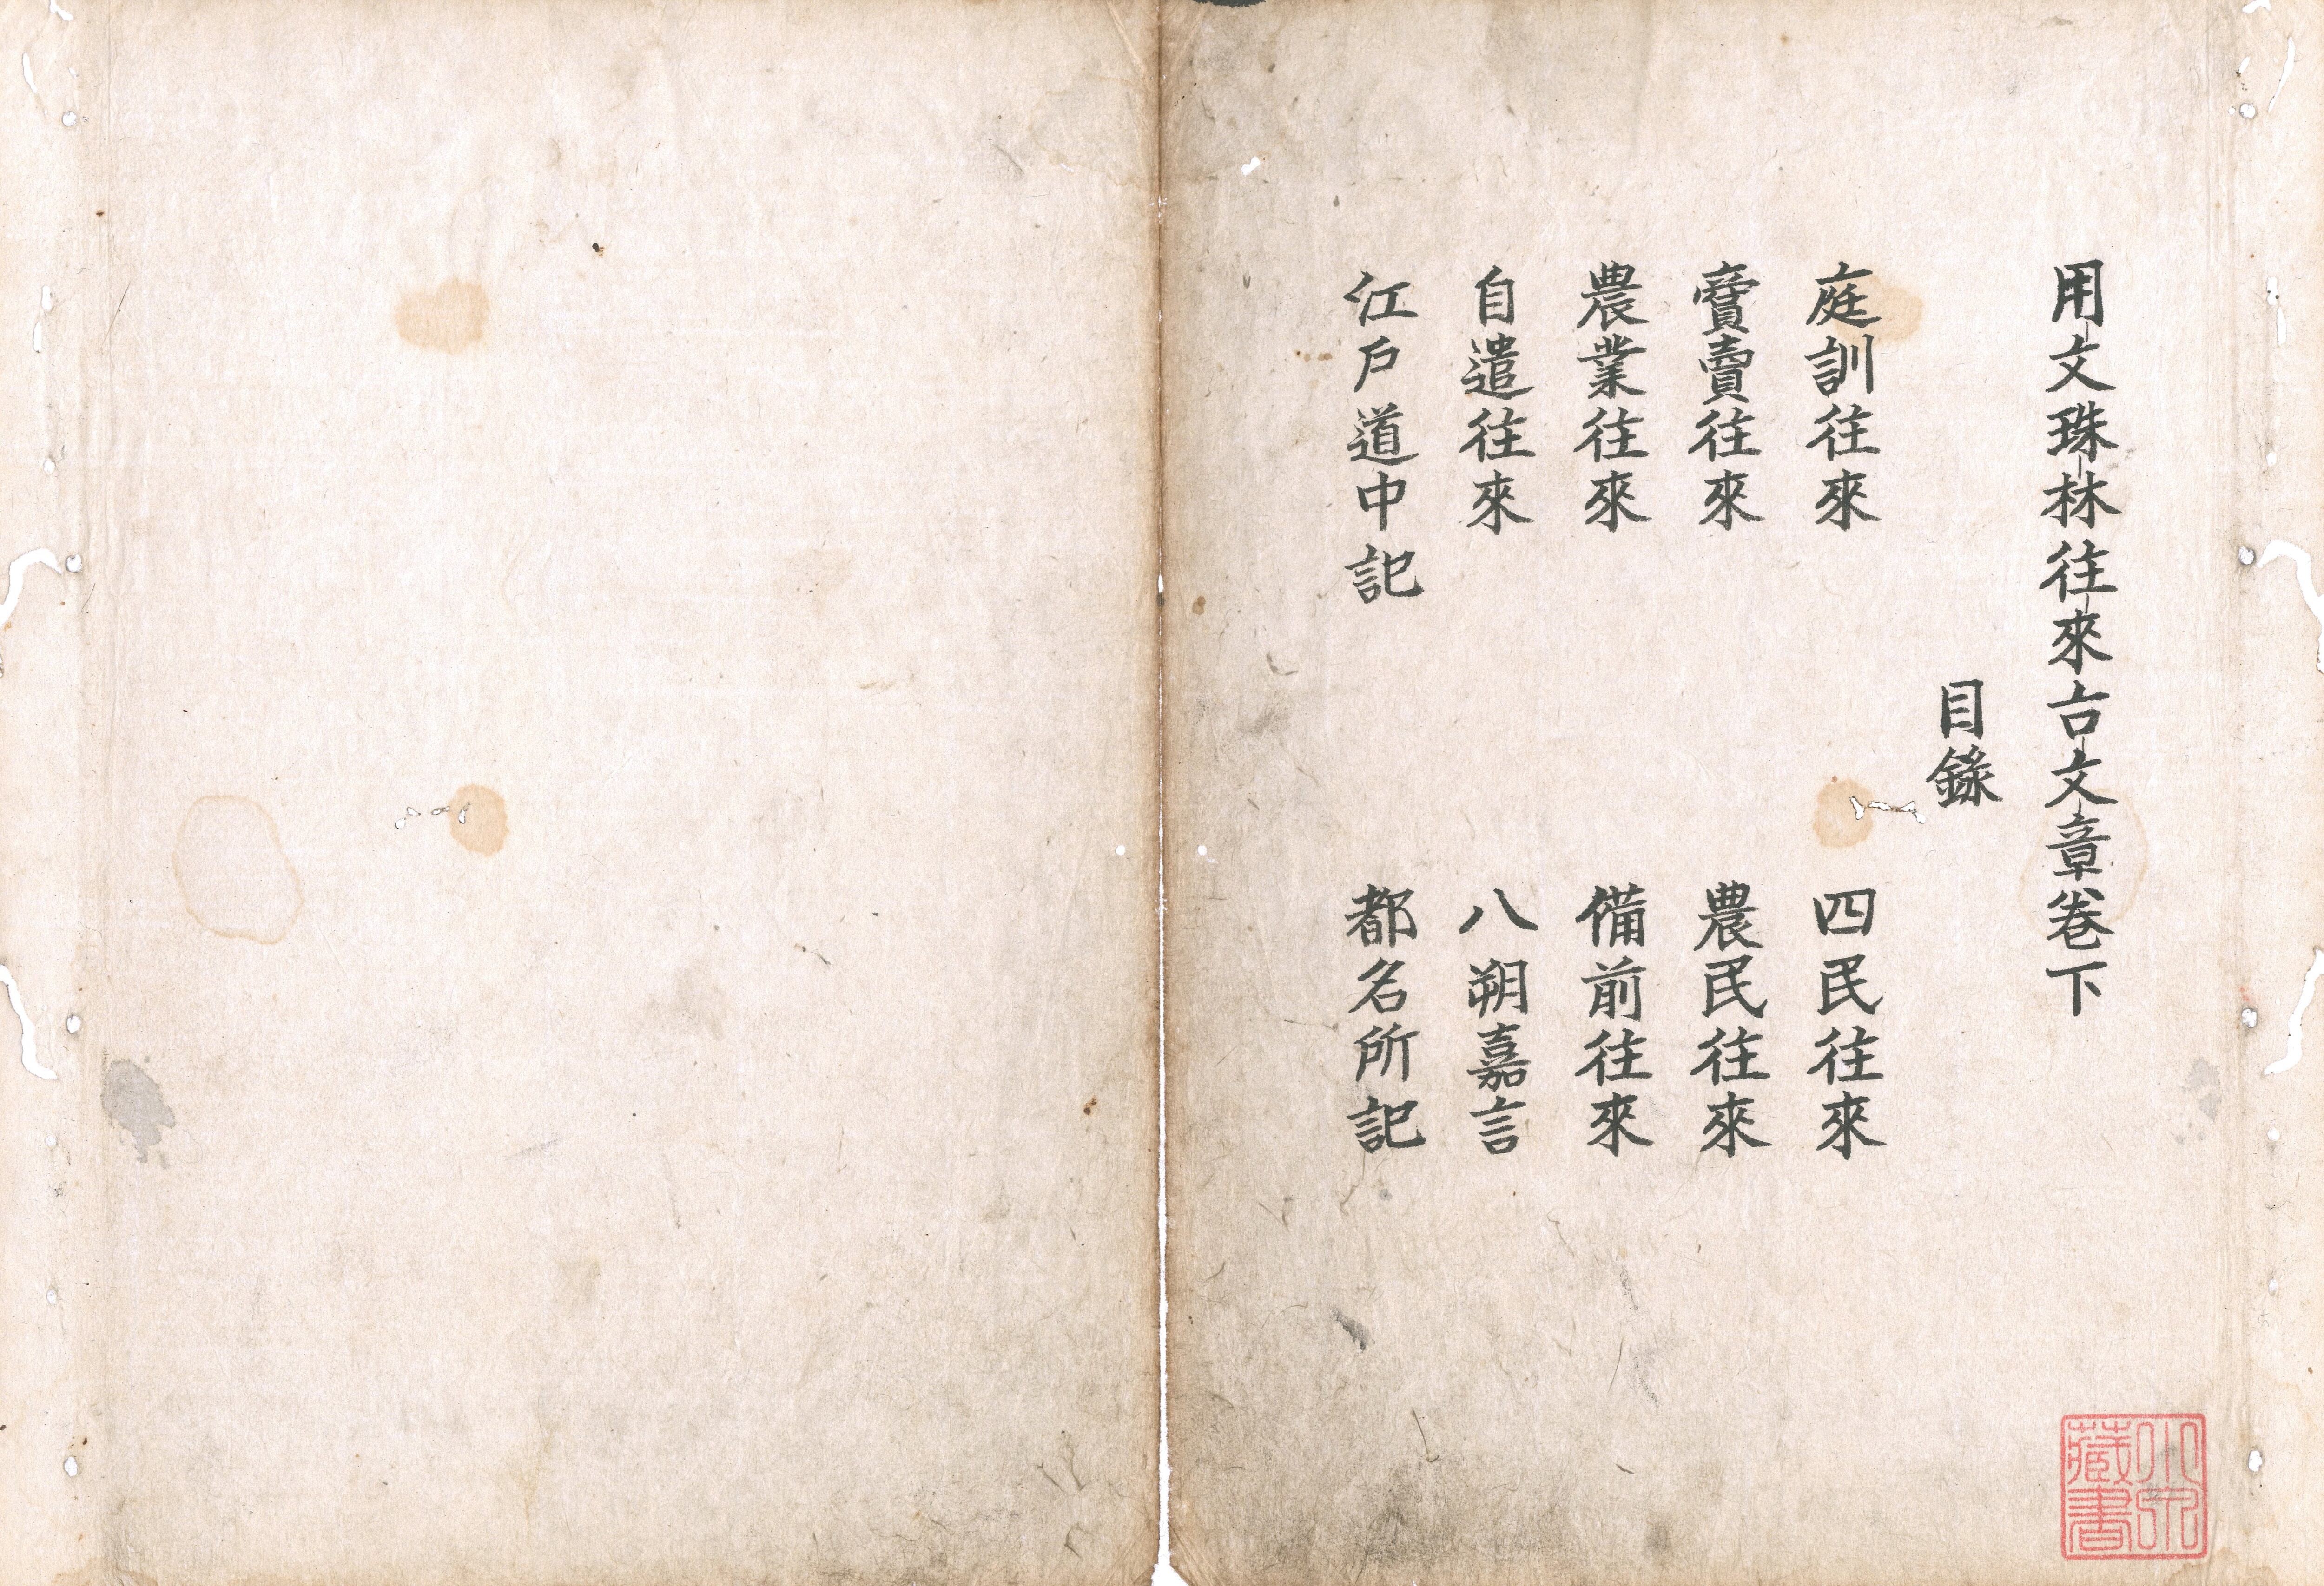 用文珠林往來古文章卷下
目錄
庭訓往來 四民往來
𧶜賣往來 農民往來
農業往來 備前往來
自遣往來 八朔嘉言
江戶道中記 都名所記
藏書